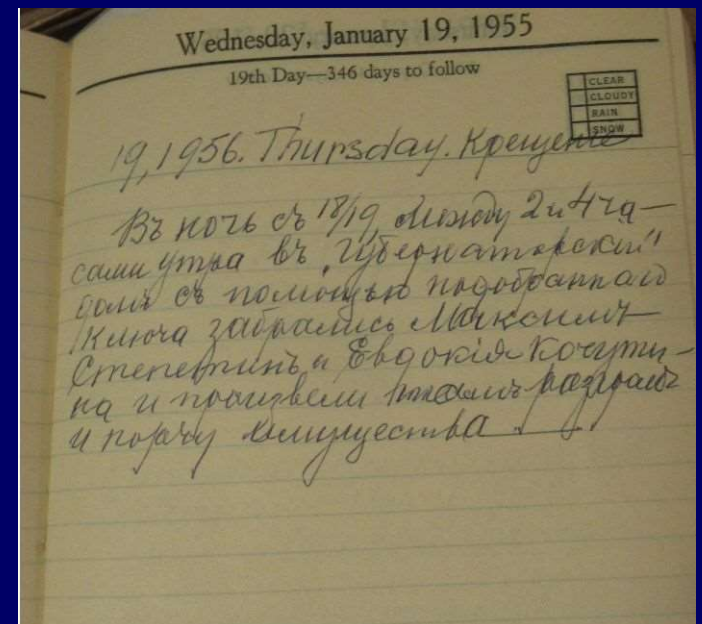 Wednesday, January 19, 1955
19th Day—346 days to follow
CLEAR
CLOUDY
RAIN
SNOW
19, 1956. Thursday. Крещеніе
Въ ночь съ 18/19, между 2 и 4 ча-
сами утра въ „Губернаторскій"
домъ съ помощью подобраннаго
ключа забрались Максимъ
и Евдокія
на и произвели тамъ разгромъ
и порчу имущества.